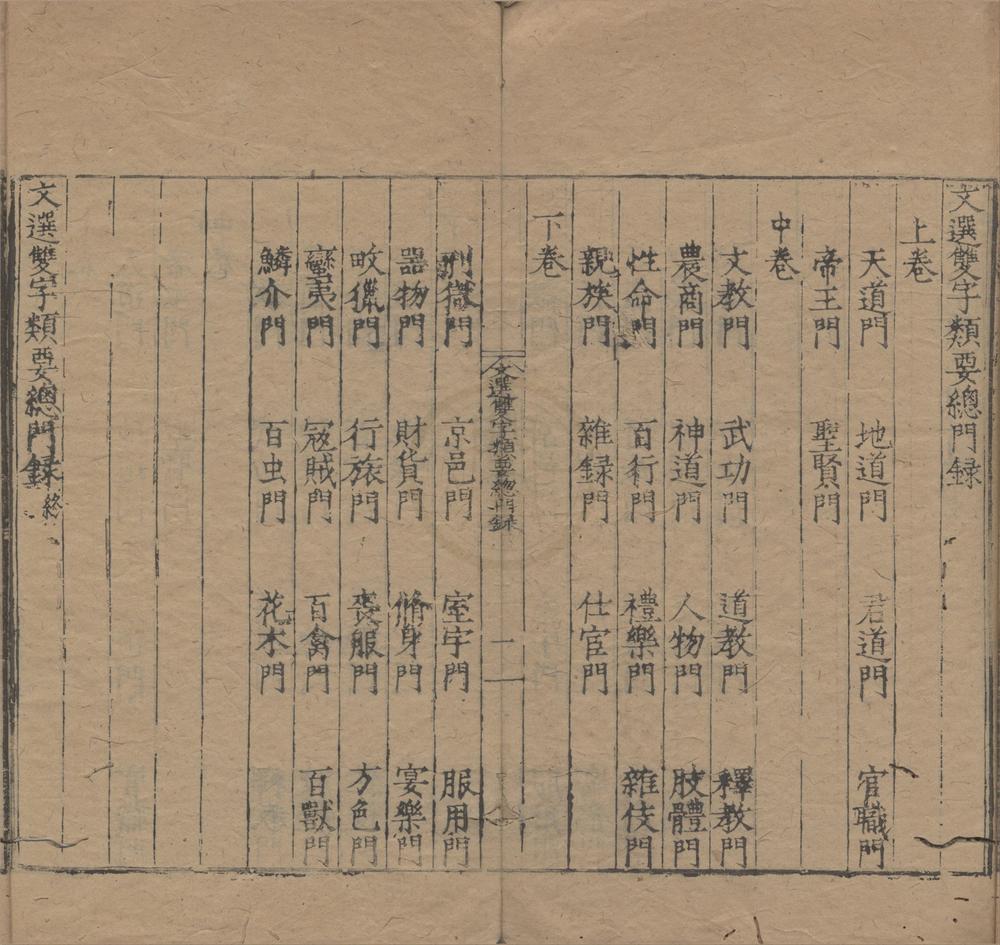 文選雙字類要總門録
上卷
天道門 地道門 君道門 官職門
帝王門 聖賢門
中卷
文教門 武功門 道教門 釋教門
農商門 神道門 人物門 肢體門
性命門 百行門 禮樂門 雜伎門
親族門 雜録門 仕宦門
下卷
文選雙字類要總門録 一
刑獄門 京邑門 室宇門 服用門
器物門 財貨門 脩身門 宴樂門
畋獵門 行旅門 喪服門 方色門
蠻夷門 冦賊門 百禽門 百獸門
鱗介門 百虫門 花木門
文選雙字類要總門録終